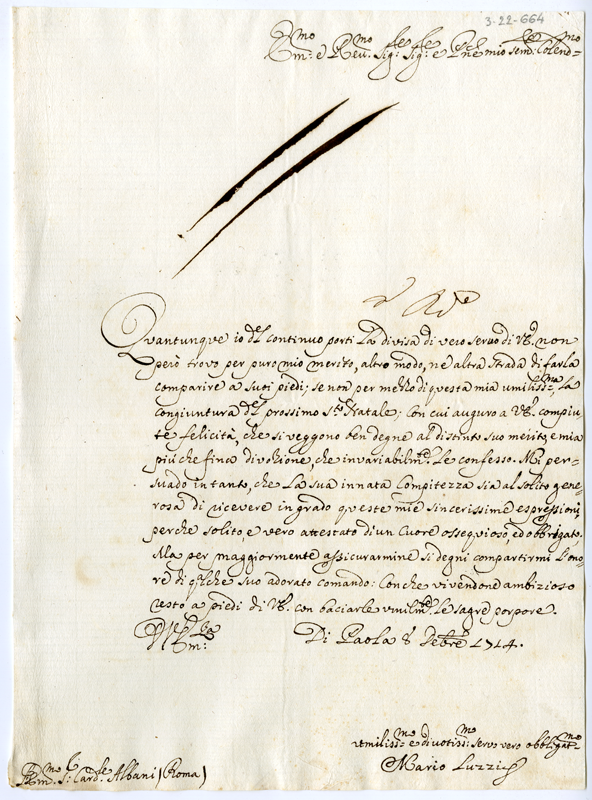 3-22-664
Em:mo e Rev:mo Sig:re Sig:re e Pne mio sem: Colend:mo
Quantunque io del continuo porti la divisa di vero servo di V.E. non
però trovo per puro mio merito, altro modo, ne altra strada di farla
comparire a suoi piedi; se non per mezzo di questa mia umiliss:ma, La
congiuntura del prossimo S.to Natale; Con cui auguro a V.E. compiu
te felicità, che si veggono ben degne al distinto suo merito, e mia
più che fina divozione, che invariabilm.te Le confesso. Mi per-
suado in tanto, che La sua innata Compitezza sia al solito gene-
rosa di ricevere in grado queste mie sincerissime espressioni,
perche solito e vero attestato d'un Cuore ossequioso, ed obbrigato.
Ma per maggiormente assicurarmine si degni compartirmi L'ono-
re di qlche suo adorato comando: Con che vivendone ambizioso
resto a piedi di V.E. con baciarle umilm.te Le sagre porpore.
Di V. Em:za
Di Paola 8 Xebre 1714.
Umiliss:mo e divotiss:mo servo vero obbligat:mo
Mario Luzzi
Em:mo S: Card:le Albani (Roma)